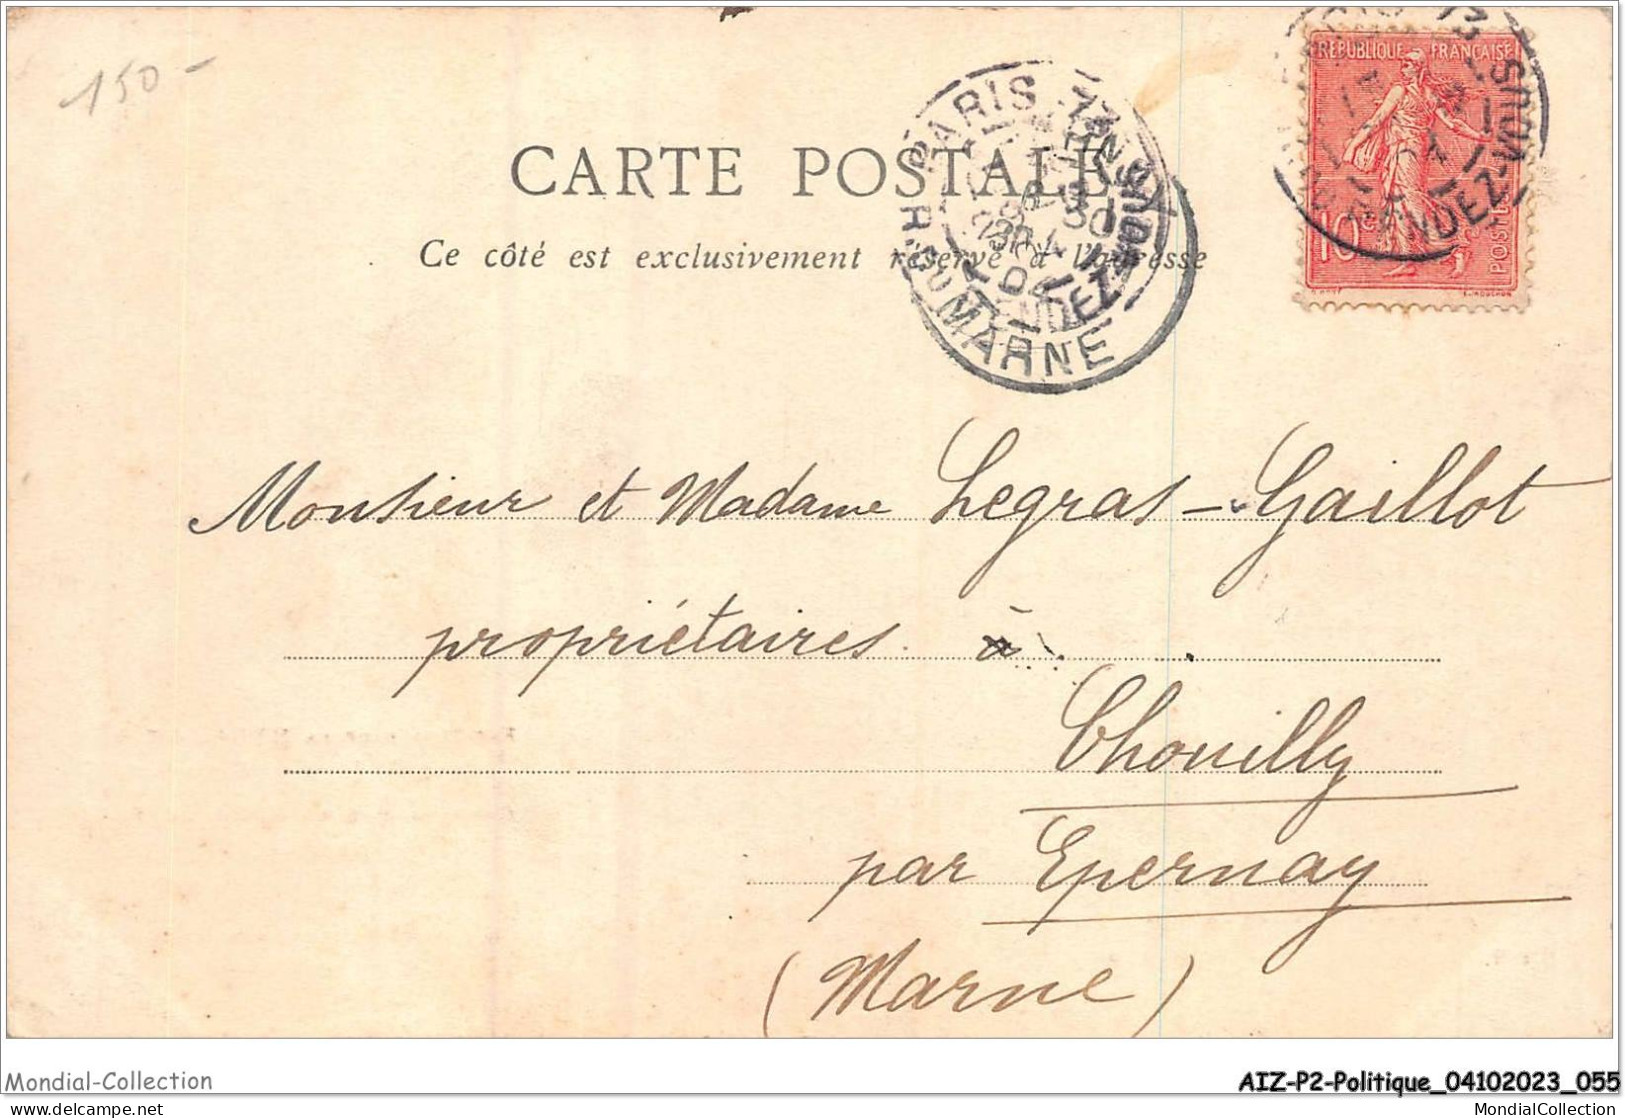 150-
RÉPUBLIQUE FRANÇAISE
10c
POSTES
PARIS
MARNE
CARTE POSTALE
Ce côté est exclusivement réservé à l'adresse
Monsieur et Madame Legras-Gaillot
propriétaires à
Chouilly
par Epernay
(Marne)
Mondial-Collection
AIZ-P2-Politique_04102023_055
delcampe.net
MondialCollection